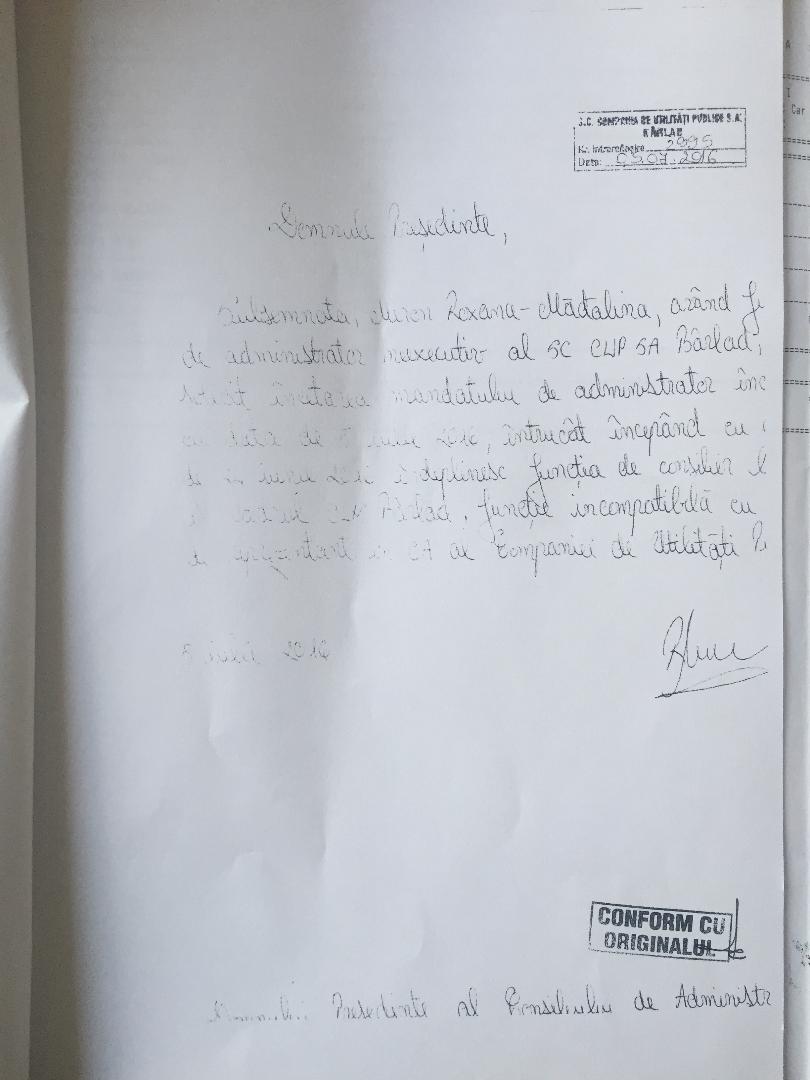 S.C. COMPANIA DE UTILITĂȚI PUBLICE S.A.
BÂRLAD
Nr. intrare/ieșire 2995
Data: 05.07.2016
Domnule Președinte,
Subsemnata, Roxana-Mădălina, având
de administrator neexecutiv al SC CUP SA Bârlad,
încetarea mandatului de administrator înc
cu data de 5 iulie 2016, întrucât începând cu
de iunie 2016 îndeplinesc funcția de consilier
Bârlad, funcție incompatibilă cu
de reprezentant în CA al Companiei de Utilități
5 iulie 2016
CONFORM CU
ORIGINALUL
Domnului Președinte al Consiliului de Administr